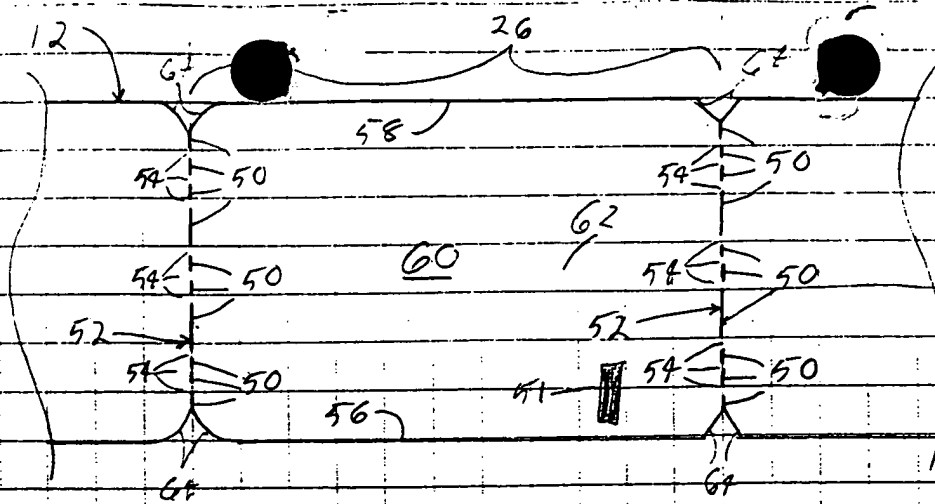 12
26
64
64
58
54
50
54
50
62
60
54
50
54
50
52
52
54
50
51
54
50
56
64
64